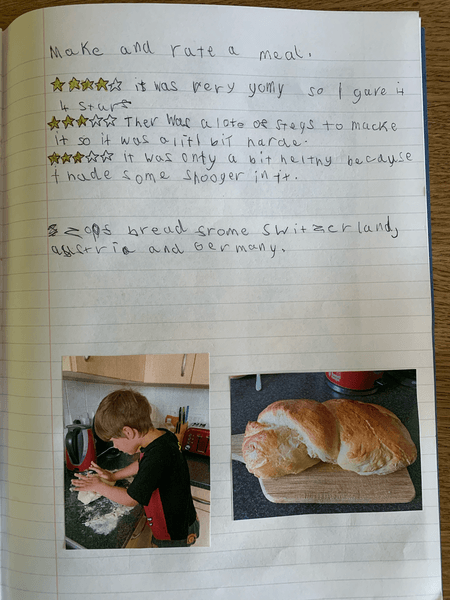 Make and rate a meal.
it was very yomy so I gave it
4 stars
Ther was a lote of steps to macke
it so it was a litl bit harde.
It was only a bit helthy because
it hade some shooger in it.
zops bread frome Switzerland,
austria and Germany.